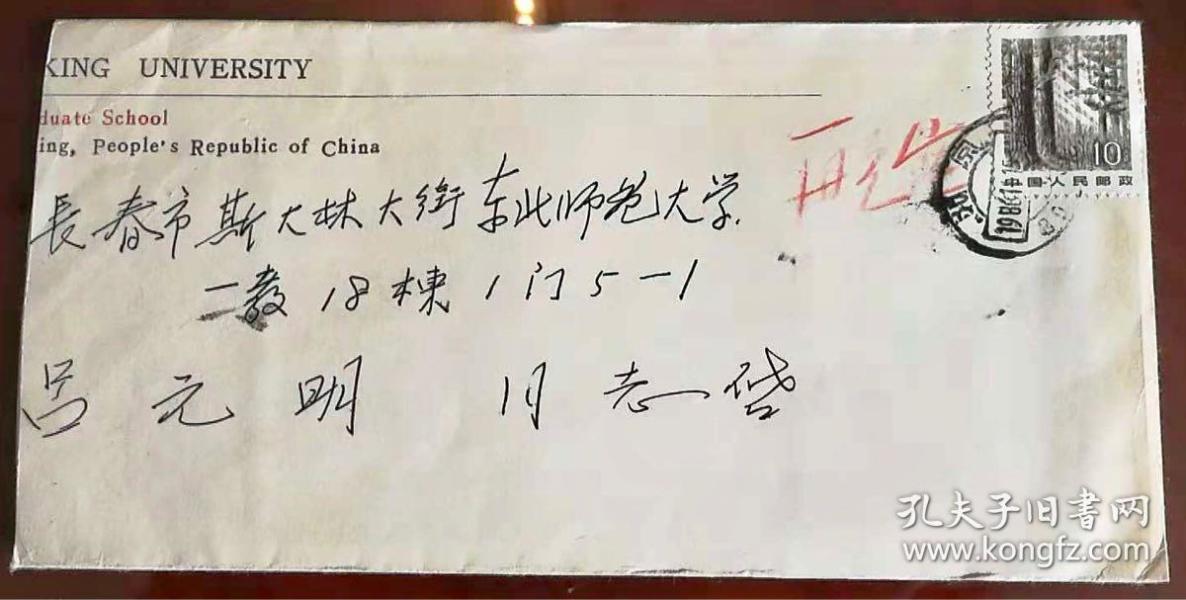 KING UNIVERSITY
duate School
ing, People's Republic of China
長春市斯大林大街东北师范大学
二教18栋1门5-1
吕元明 同志启
10
中国人民邮政
孔夫子旧書网
www.kongfz.com